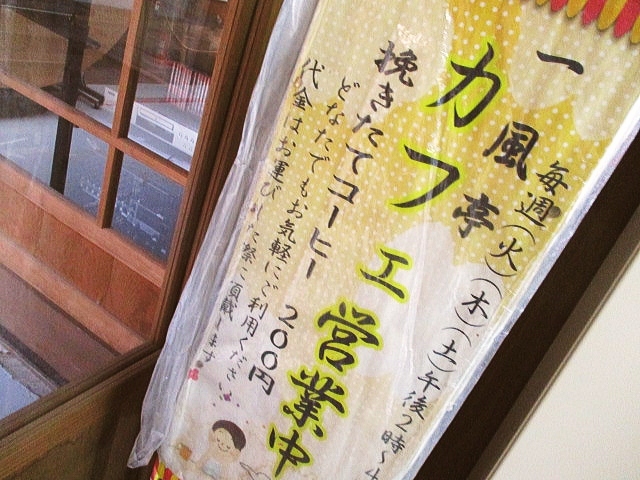 一風亭
毎週(火)(木)(土)午後2時～4
カフェ営業中
挽きたてコーヒー 200円
どなたでもお気軽にご利用ください
代金はお運びした際に頂戴します